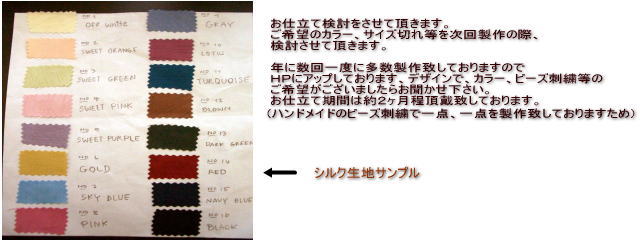 NO 1
OFF WHITE
NO 2
SWEET ORANGE
NO 3
SWEET GREEN
NO 4
SWEET PINK
NO 5
SWEET PURPLE
NO 6
GOLD
NO 7
SKY BLUE
NO 8
PINK
NO 9
GRAY
NO 10
LOTUS
NO 11
TURQUOISE
NO 12
BROWN
NO 13
DARK GREEN
NO 14
RED
NO 15
NAVY BLUE
NO 16
BLACK
お仕立て検討をさせて頂きます。
ご希望のカラー、サイズ切れ等を次回製作の際、
検討させて頂きます。
年に数回一度に多数製作致しておりますので
HPにアップしております、デザインで、カラー、ビーズ刺繍等の
ご希望がございましたらお聞かせ下さい。
お仕立て期間は約2ヶ月程頂戴致しております。
(ハンドメイドのビーズ刺繍で一点、一点を製作致しておりますため)
シルク生地サンプル